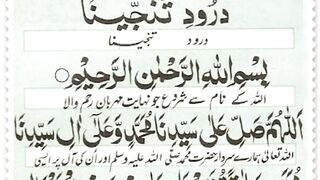 درودِ تنجینا
درود تنجینا
بِسْمِ اللهِ الرَّحْمٰنِ الرَّحِيْمِ
اللہ کے نام سے شروع جو نہایت مہربان رحم والا
اَللّٰهُمَّ صَلِّ عَلٰى سَيِّدِنَا مُحَمَّدٍ وَّعَلٰٓى اٰلِ سَيِّدِنَا
اللہ تعالیٰ ہمارے سردار حضرت محمد صلی اللہ علیہ وسلم اور ان کی آل پر ایسی